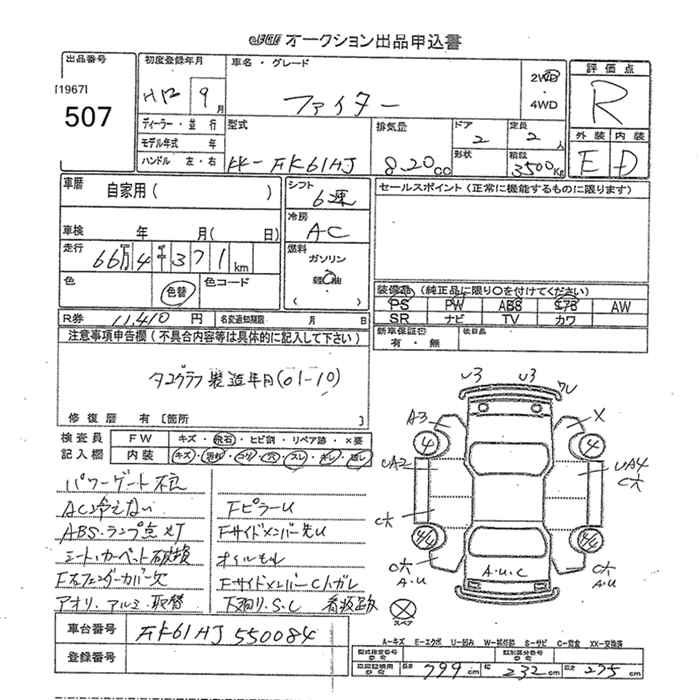 オークション出品申込書
出品番号
[1967]
507
初度登録年月
H12 9月
車名・グレード
ファイター
2WD・4WD
評価点
R
外装 内装
E D
ディーラー・並行
モデル年式 年
ハンドル 左・右
型式
KK-FK61HJ
排気量
8.20cc
ドア
2
形状
定員
2人
積載
3500Kg
車歴
自家用( )
車検 年 月( 日)
走行
66万4千371km
色
色替
色コード
シフト
6速
冷房
A-C
燃料
ガソリン
軽油
( )
セールスポイント(正常に機能するものに限ります)
装備品(純正品に限り○を付けてください)
PS PW ABS エアB AW
SR ナビ TV カワ
新車保証書
有・無
R券 11,410円
名変通知期限 月 日
注意事項申告欄(不具合内容等は具体的に記入して下さい)
タコグラフ製造年月(01-10)
修復歴 有〔箇所
検査員記入欄
FW キズ・飛石・ヒビ割・リペア跡・×要
内装
パワーゲート不良
AC冷えない
ABSランプ点灯
シート・カーペット破損
Fフェンダーカバー欠
アオリ・アルミ・取替
FピラーU
Fサイドメンバー先U
オイルもれ
下廻り.S.C 看板跡
U3 U3
A3
X
4 4
UA2
UA4
C大
C大
C大
A.U
A.U.C
C大
A.U
スペア
車台番号
FK61HJ 550084
登録番号
A-キズ E-エクボ U-凹み S-サビ C-腐食 XX-交換済
799cm 232cm 275cm